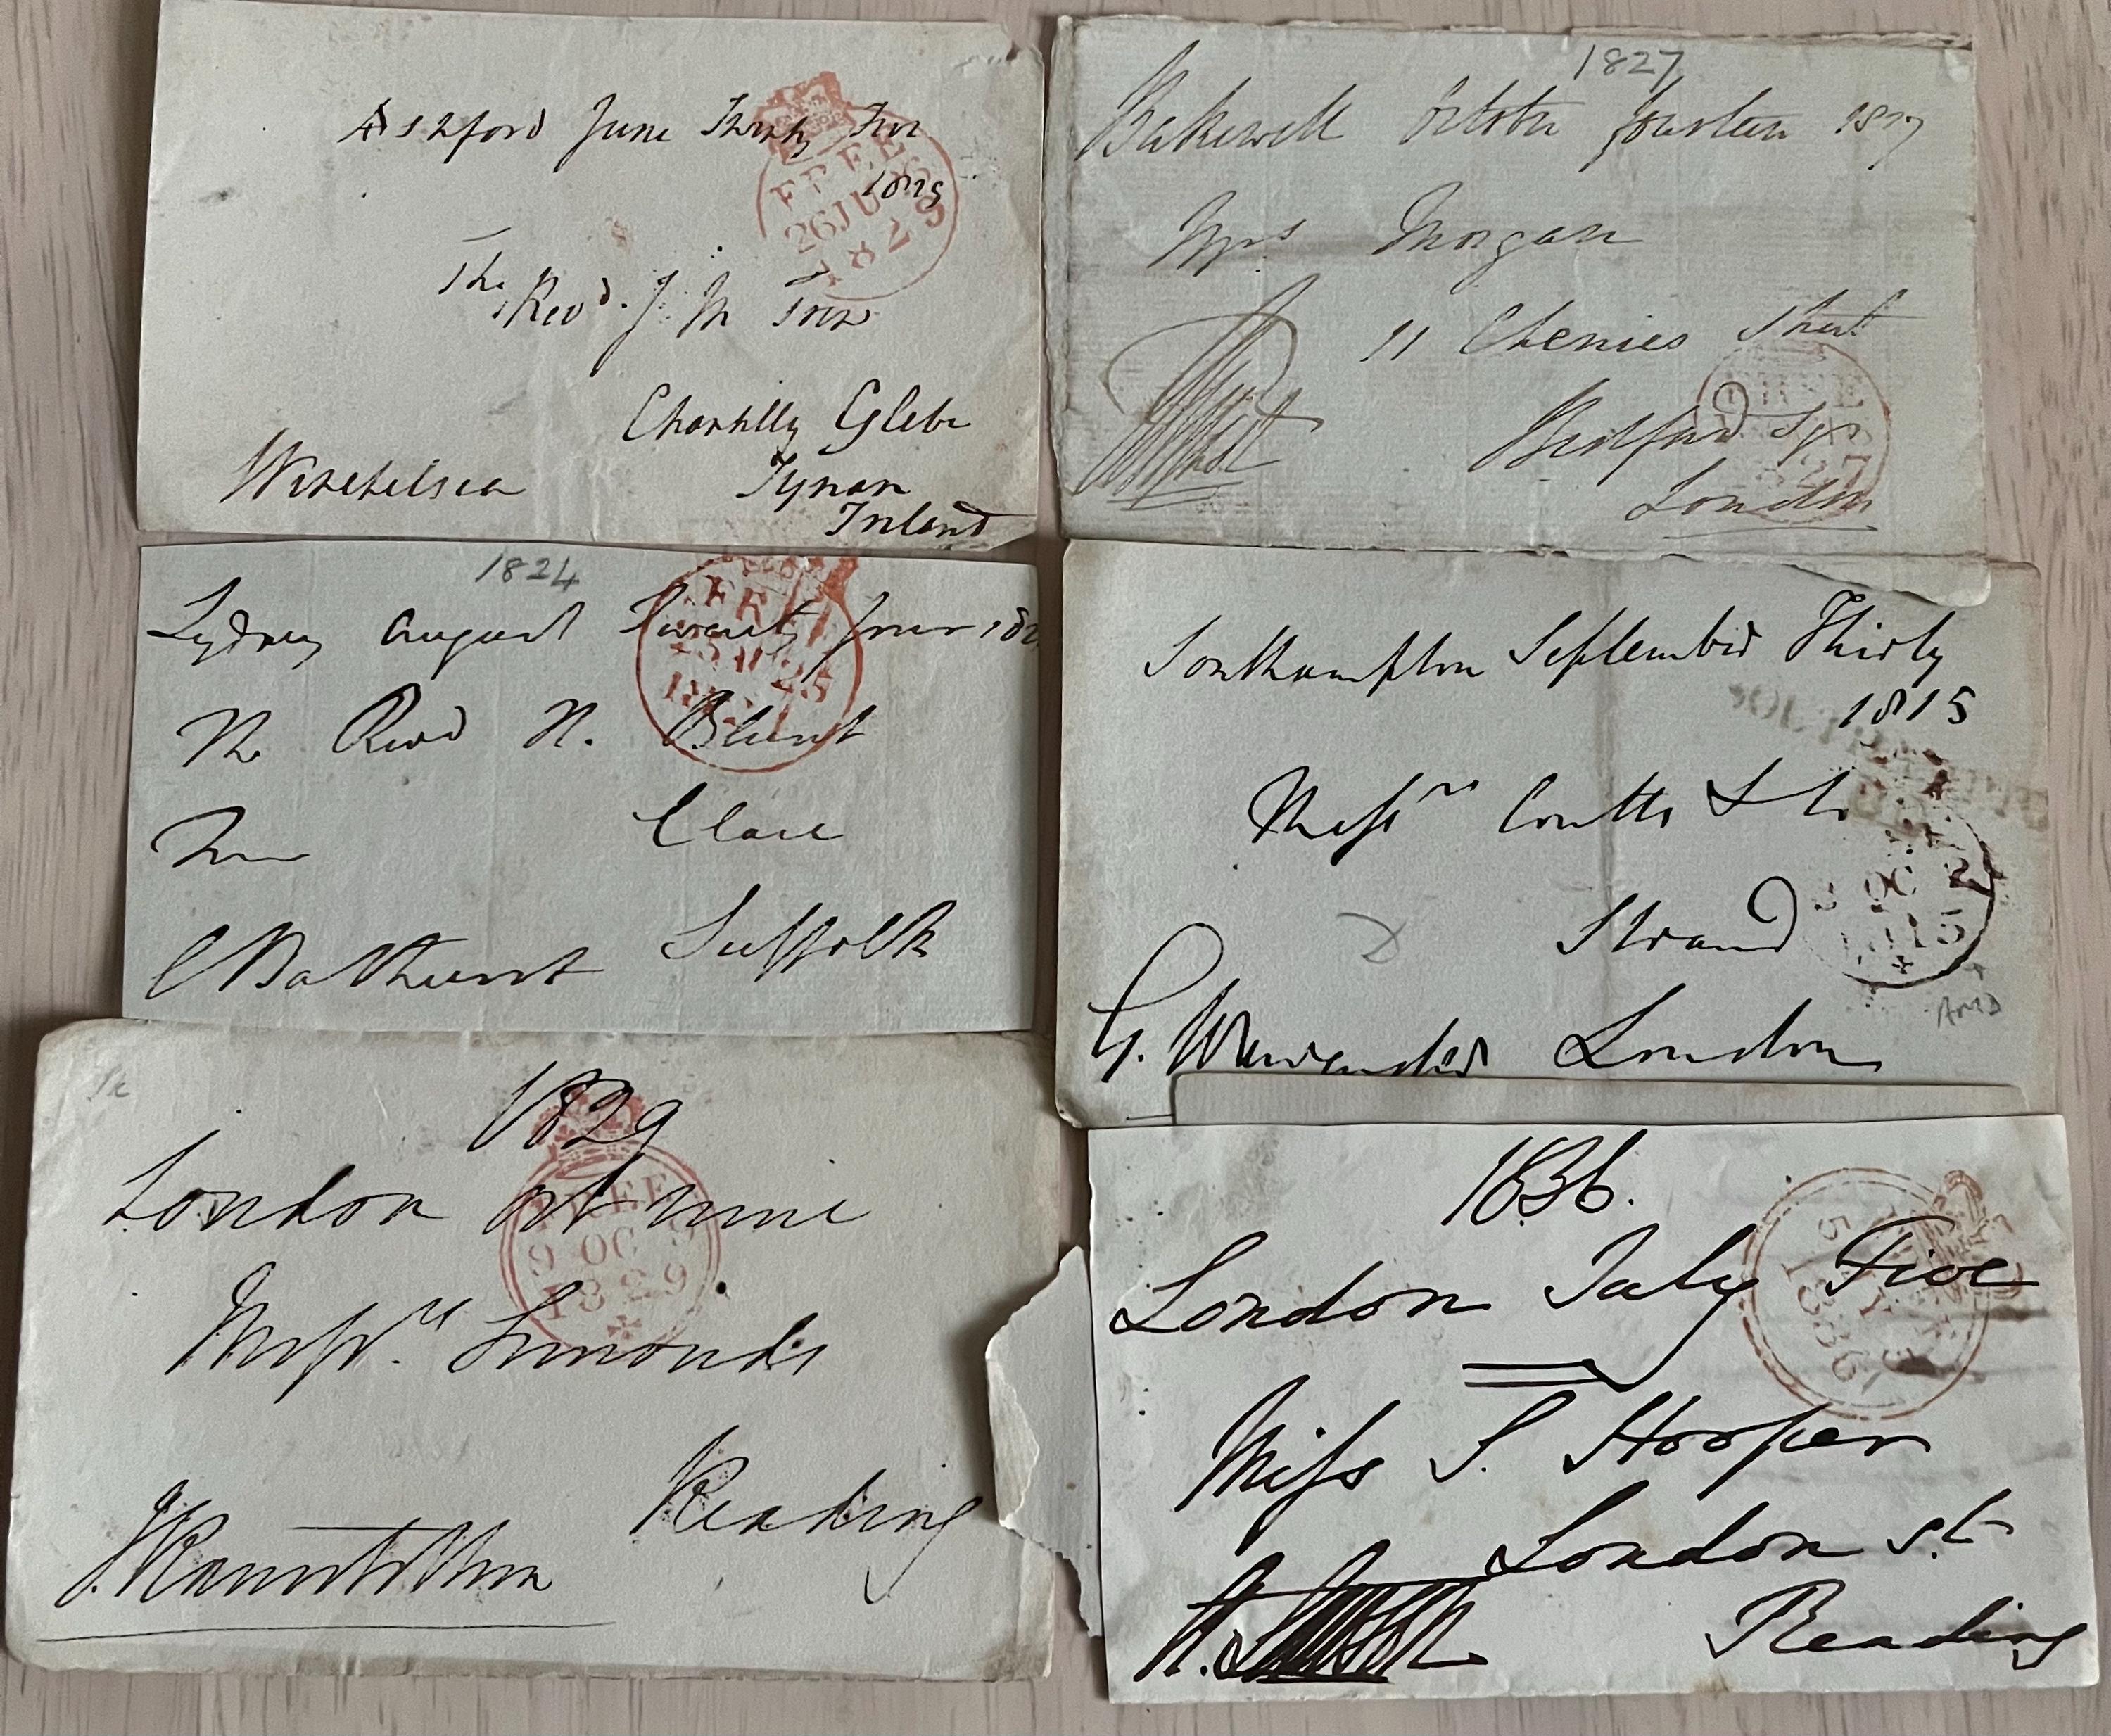 Ashford June Twenty Five
1829
FREE
26 JU 26
1829
The Revd. J M
Chantilly Glebe
Tynan
Ireland
Winchelsea
1827
Bakewell October fourteen 1827
Mrs Morgan
11 Chenies Street
Bedford Sqr
London
FREE
1827
1824
Lydney August Twenty four 182
The Revd N. Blunt
Clare
Suffolk
CBathurst
FREE
25 AU 25
Southampton September Thirty
1815
Messrs Coutts & Co
Strand
London
OC 2
1815
1829
London oct nine
Messrs. Simonds
Reading
FREE
9 OC 9
1829
1836.
London July Five
Miss S. Hooper
London St
Reading
5 JY 5
1836